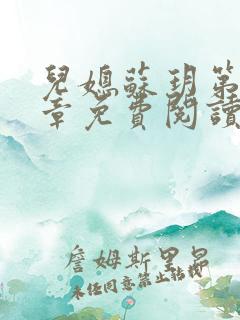 兒媳蘇玥第
章免費閱讀
詹姆斯里昂
未经同意禁止转载